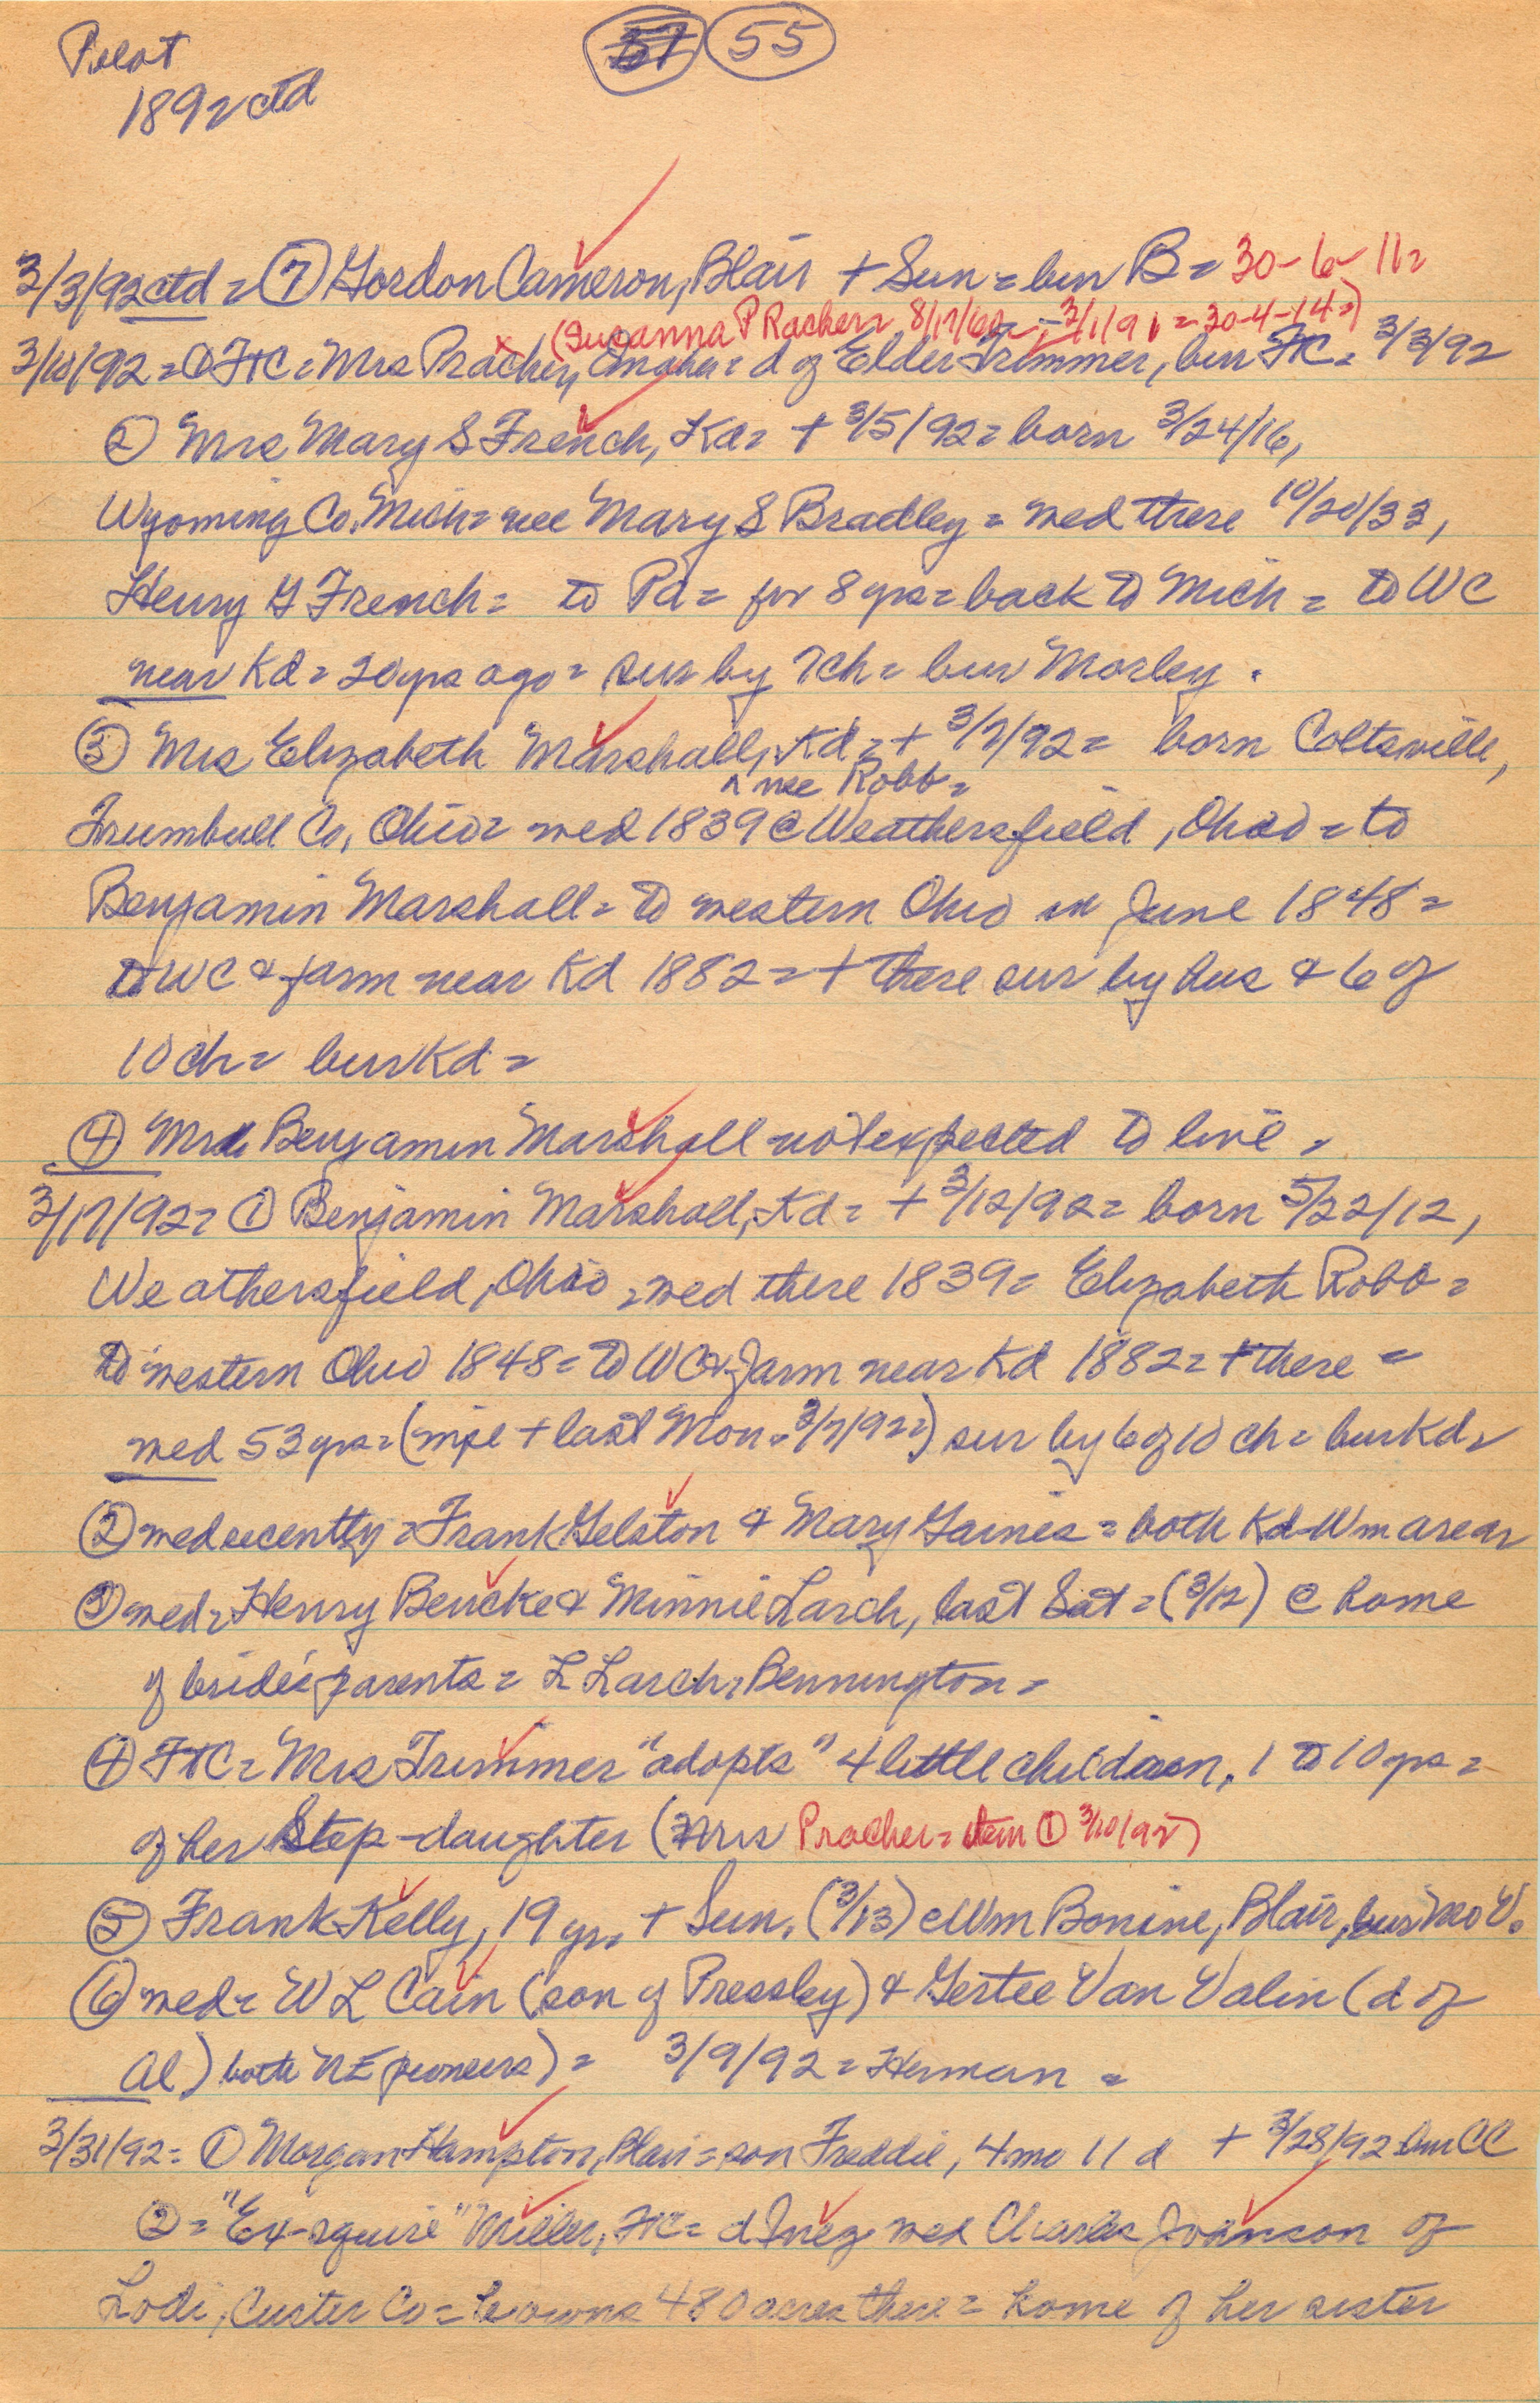 Pilot
57 55
1892 ctd
3/3/92 ctd = ⑦ Gordon Cameron, Blair + Sun = bur B = 30-6-11=
(Susanna P Racherr 8/17/60 = - 3/1/91 = 30-4-14=)
3/10/92 = ① FtC = Mrs Pracher, Omaha = d of Elder Trimmer, bur FtC = 3/3/92
② Mrs Mary S French, Kd = + 3/5/92 = born 3/24/16,
Wyoming Co. Mich = nee Mary S Bradley = wed there 10/20/33,
Henry G French = to Pa = for 8 yrs = back to Mich = to WC
near Kd = 20 yrs ago = sur by 7 ch = bur Morley.
③ Mrs Elizabeth Marshall, Kd = + 3/7/92 = born Coltsville,
^ nee Robb =
Trumbull Co, Ohio = wed 1839 @ Weathersfield, Ohio = to
Benjamin Marshall = to western Ohio in June 1848 =
to WC & farm near Kd 1882 = + there sur by hus & 6 of
10 ch = bur Kd =
④ Mr. Benjamin Marshall not expected to live =
3/17/92 = ① Benjamin Marshall, Kd = + 3/12/92 = born 5/22/12,
Weathersfield, Ohio, wed there 1839 = Elizabeth Robb =
to western Ohio 1848 = to WC & farm near Kd 1882 = + there =
wed 53 yrs = (wife + last Mon = 3/7/92 =) sur by 6 of 10 ch = bur Kd =
② wed recently = Frank Gelston & Mary Gaines = both Kd-Wm area
③ wed = Henry Beucke & Minnie Larch, last Sat = (3/12) @ home
of bride's parents = L Larch, Bennington =
④ FtC = Mrs Trimmer "adopts" 4 little children, 1 to 10 yrs =
of her step-daughter (Mrs Pracher = item ① 3/10/92)
⑤ Frank Kelly, 19 yr. + Sun. (3/13) @ Wm Bonine, Blair, bur Mo V.
⑥ wed = W L Cain (son of Pressley) & Gertee Van Valin (d of
Al) both NE pioneers) = 3/9/92 = Herman =
3/31/92 = ① Morgan Hampton, Blair = son Freddie, 4 mo 11 d + 3/28/92 bur CC
② = "Ex-squire" Miller, FtC = d Inez wed Charles Johnson of
Lodi, Custer Co = he owns 480 acres there = home of her sister